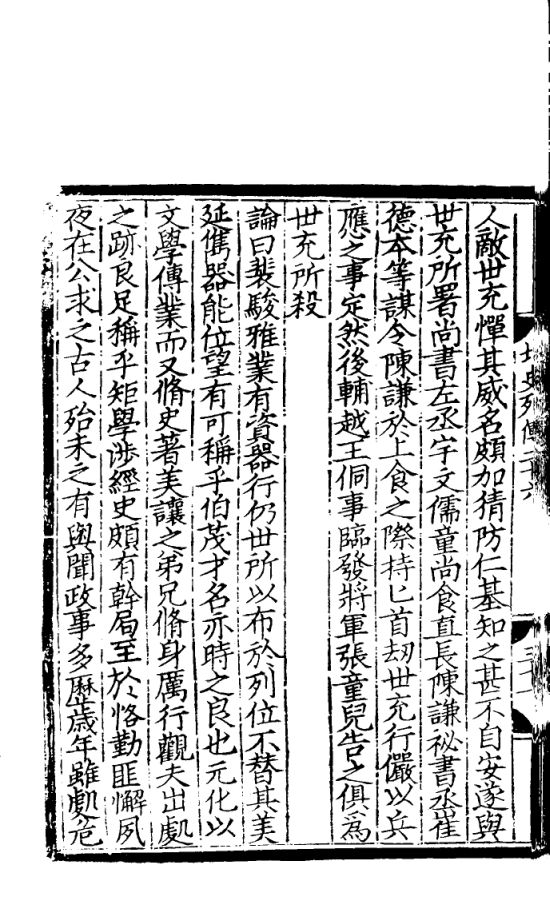 北史列傳二十六
三十一
人敵世充憚其威名頗加猜防仁基知之甚不自安遂與
世充所署尚書左丞宇文儒童尚食直長陳謙祕書丞崔
德本等謀令陳謙於上食之際持匕首刼世充行儼以兵
應之事定然後輔越王侗事臨發將軍張童兒告之俱爲
世充所殺
論曰裴駿雅業有資器行仍世所以布於列位不替其美
延儁器能位望有可稱乎伯茂才名亦時之良也元化以
文學傳業而又脩史著美讓之弟兄脩身厲行觀夫出處
之跡良足稱乎矩學涉經史頗有幹局至於恪勤匪懈夙
夜在公求之古人殆未之有與聞政事多歷歲年雖處危